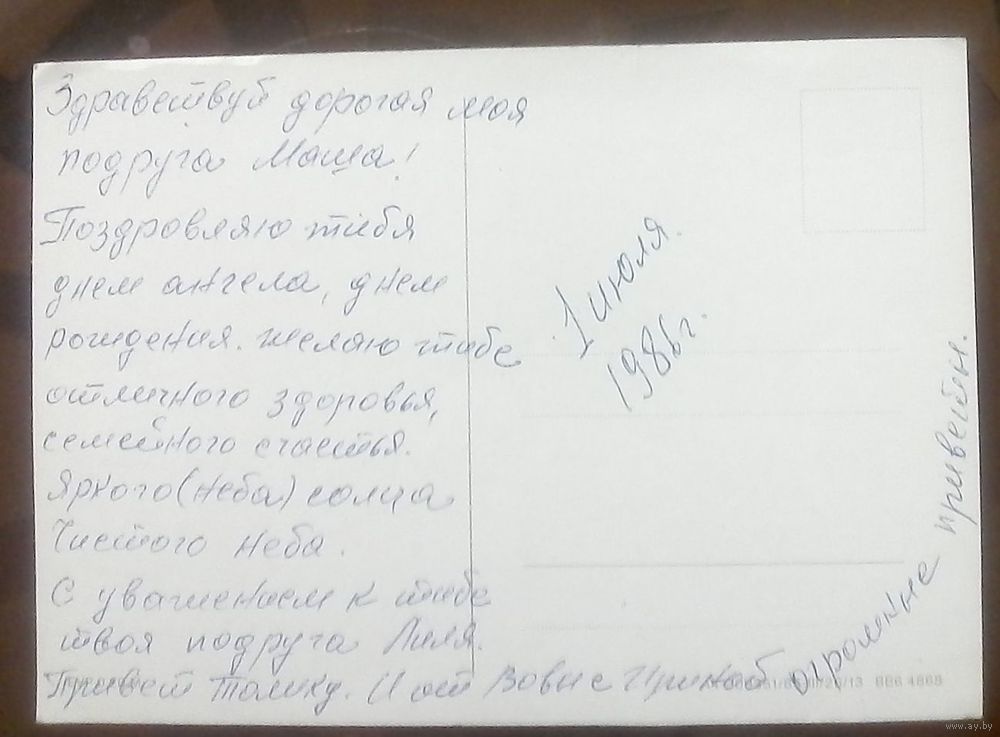 Здравствуй дорогая моя
подруга Маша!
Поздровляю тибя
днем ангела, днем
рождения. желаю тибе
отличного здоровья,
семейного счастья.
Яркого (неба) солца
Чистого неба.
С уважением к тибе
твоя подруга Лиля.
Привет Толику. И от Вовы с Ириной огромные приветы.
1 июля.
1986 г.
BBB 4868
www.ay.by